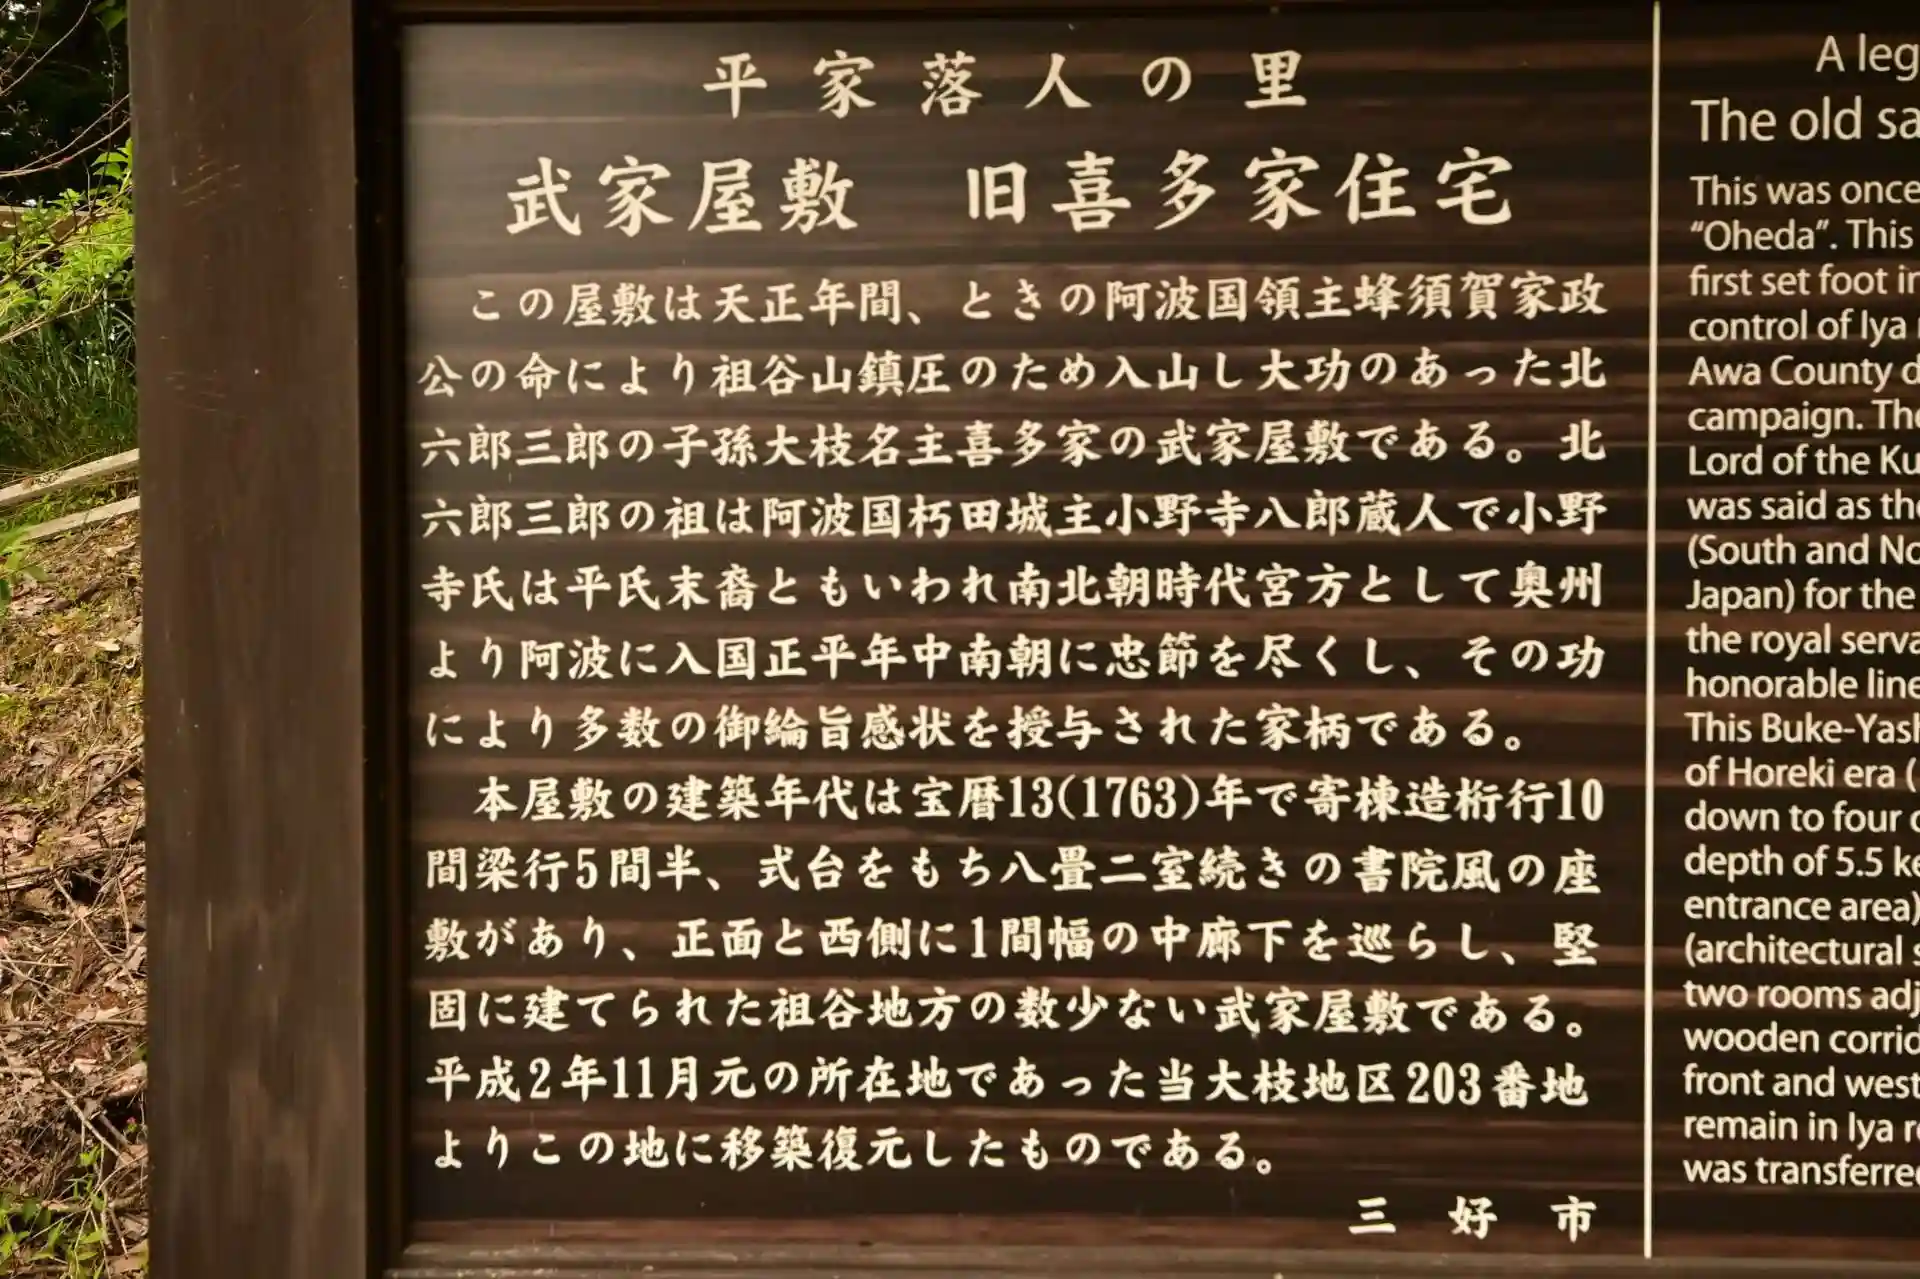 平家落人の里
武家屋敷　旧喜多家住宅
この屋敷は天正年間、ときの阿波国領主蜂須賀家政
公の命により祖谷山鎮圧のため入山し大功のあった北
六郎三郎の子孫大枝名主喜多家の武家屋敷である。北
六郎三郎の祖は阿波国朽田城主小野寺八郎蔵人で小野
寺氏は平氏末裔ともいわれ南北朝時代宮方として奥州
より阿波に入国正平年中南朝に忠節を尽くし、その功
により多数の御綸旨感状を授与された家柄である。
本屋敷の建築年代は宝暦13(1763)年で寄棟造桁行10
間梁行5間半、式台をもち八畳二室続きの書院風の座
敷があり、正面と西側に1間幅の中廊下を巡らし、堅
固に建てられた祖谷地方の数少ない武家屋敷である。
平成2年11月元の所在地であった当大枝地区203番地
よりこの地に移築復元したものである。
三好市
A leg
The old sa
This was once
“Oheda”. This
first set foot in
control of Iya
Awa County d
campaign. The
Lord of the Ku
was said as the
(South and No
Japan) for the
the royal serva
honorable line
This Buke-Yash
of Horeki era (
down to four
depth of 5.5 ke
entrance area)
(architectural s
two rooms adj
wooden corrid
front and west
remain in Iya re
was transferred